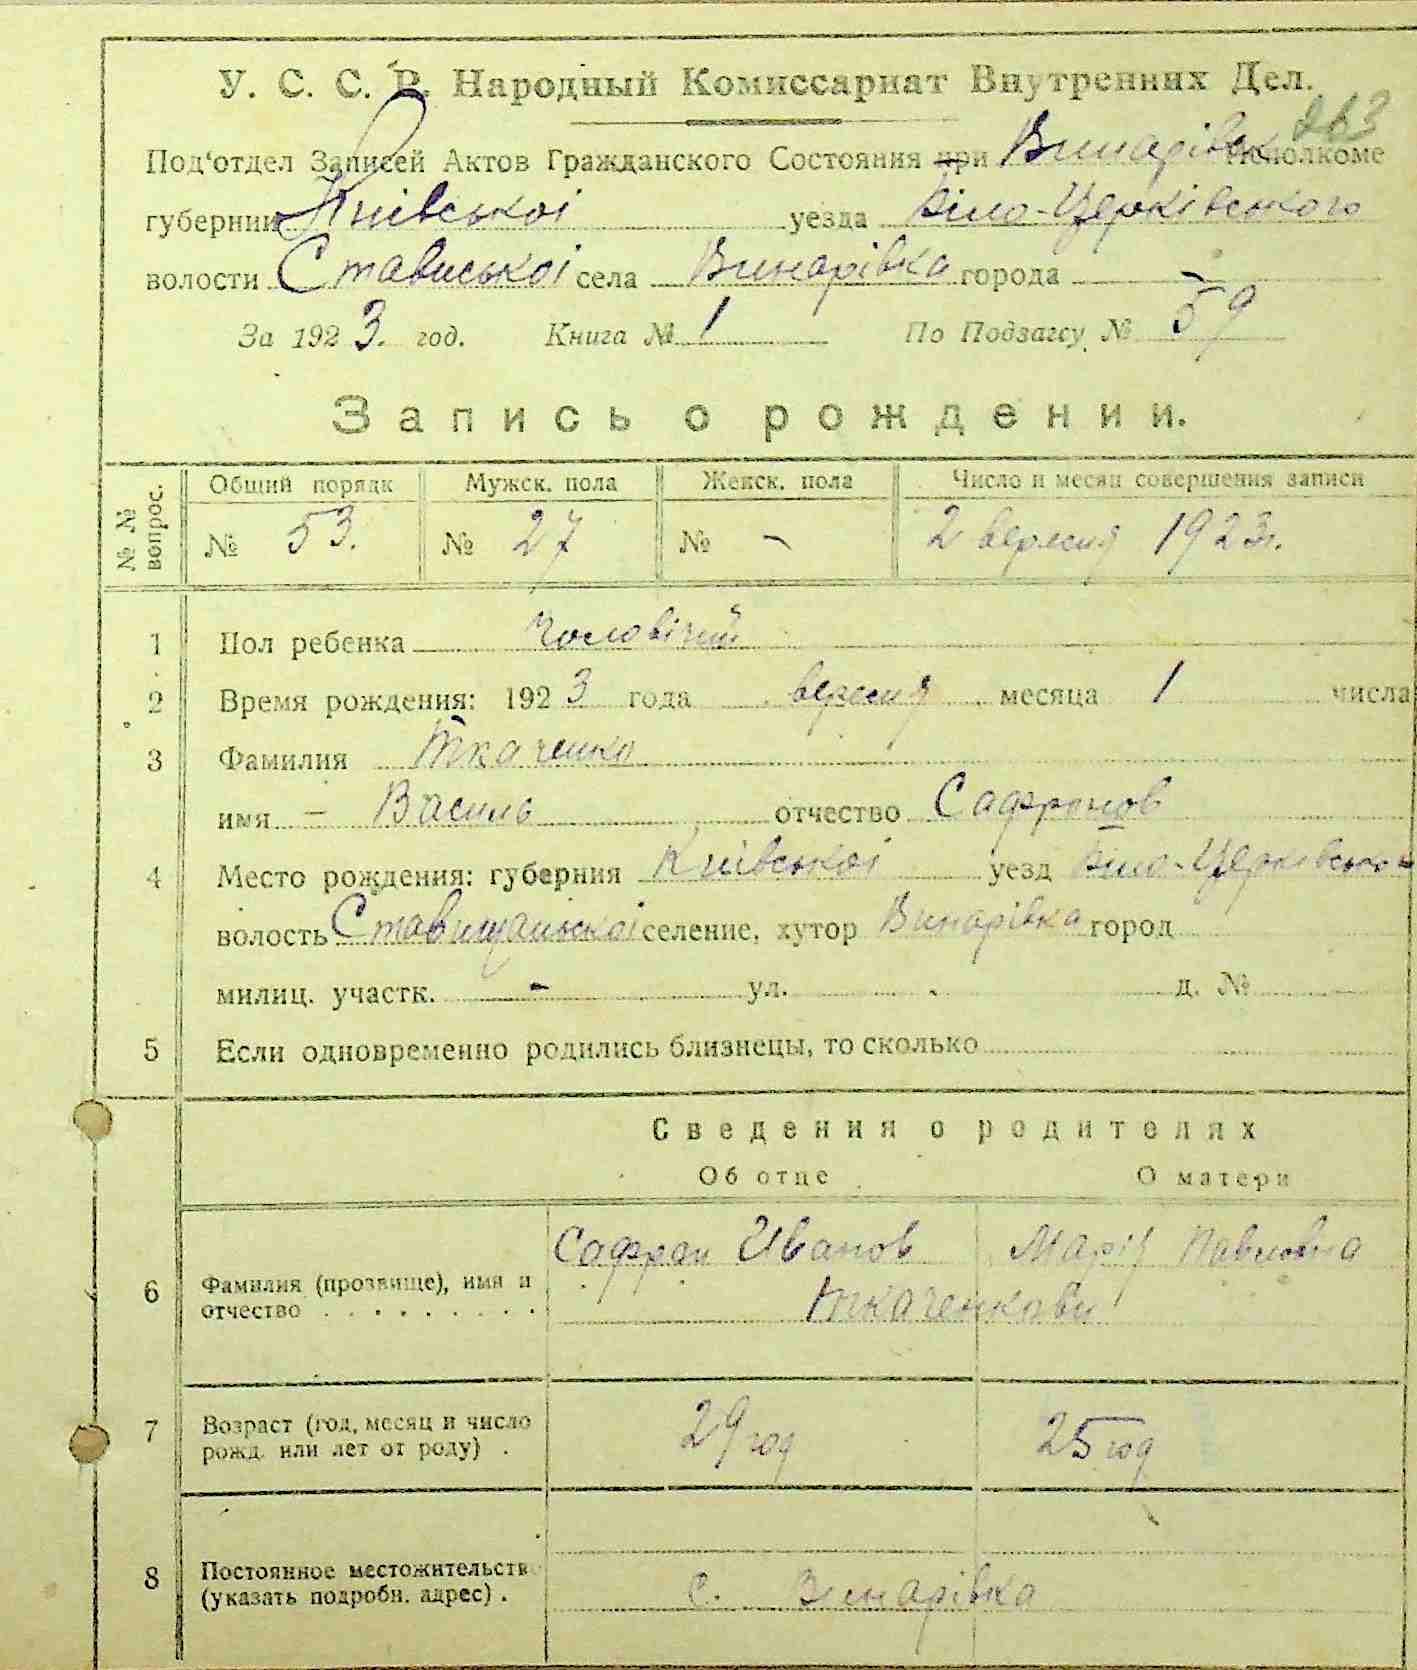 263
У. С. С. Р. Народный Комиссариат Внутренних Дел.
Под'отдел Записей Актов Гражданского Состояния при Винарівск Исполкоме
губернии Київської уезда Біло-Церківського
волости Стависької села Винарівка города
За 1923. год. Книга № 1 По Подзагсу № 59
Запись о рождении.
№ № вопрос. Общий порядк Мужск. пола Женск. пола Число и месяц совершения записи
№ 53. № 27 № - 2 вересня 1923 г.
1 Пол ребенка Чоловічий
2 Время рождения: 1923 года вересня месяца 1 числа
3 Фамилия Ткаченко
имя - Василь отчество Сафронов
4 Место рождения: губерния Київської уезд Біло-Церківського
волость Ставищанської селение, хутор Винарівка город
милиц. участк. - ул. д. №
5 Если одновременно родились близнецы, то сколько
Сведения о родителях
Об отце О матери
6 Фамилия (прозвище), имя и отчество . . . . . . . . . . Сафрон Иванов Марія Павловна
Ткаченкови
7 Возраст (год, месяц и число рожд. или лет от роду) . 29 год 25 год
8 Постоянное местожительств (указать подробн. адрес) . с. Винарівка